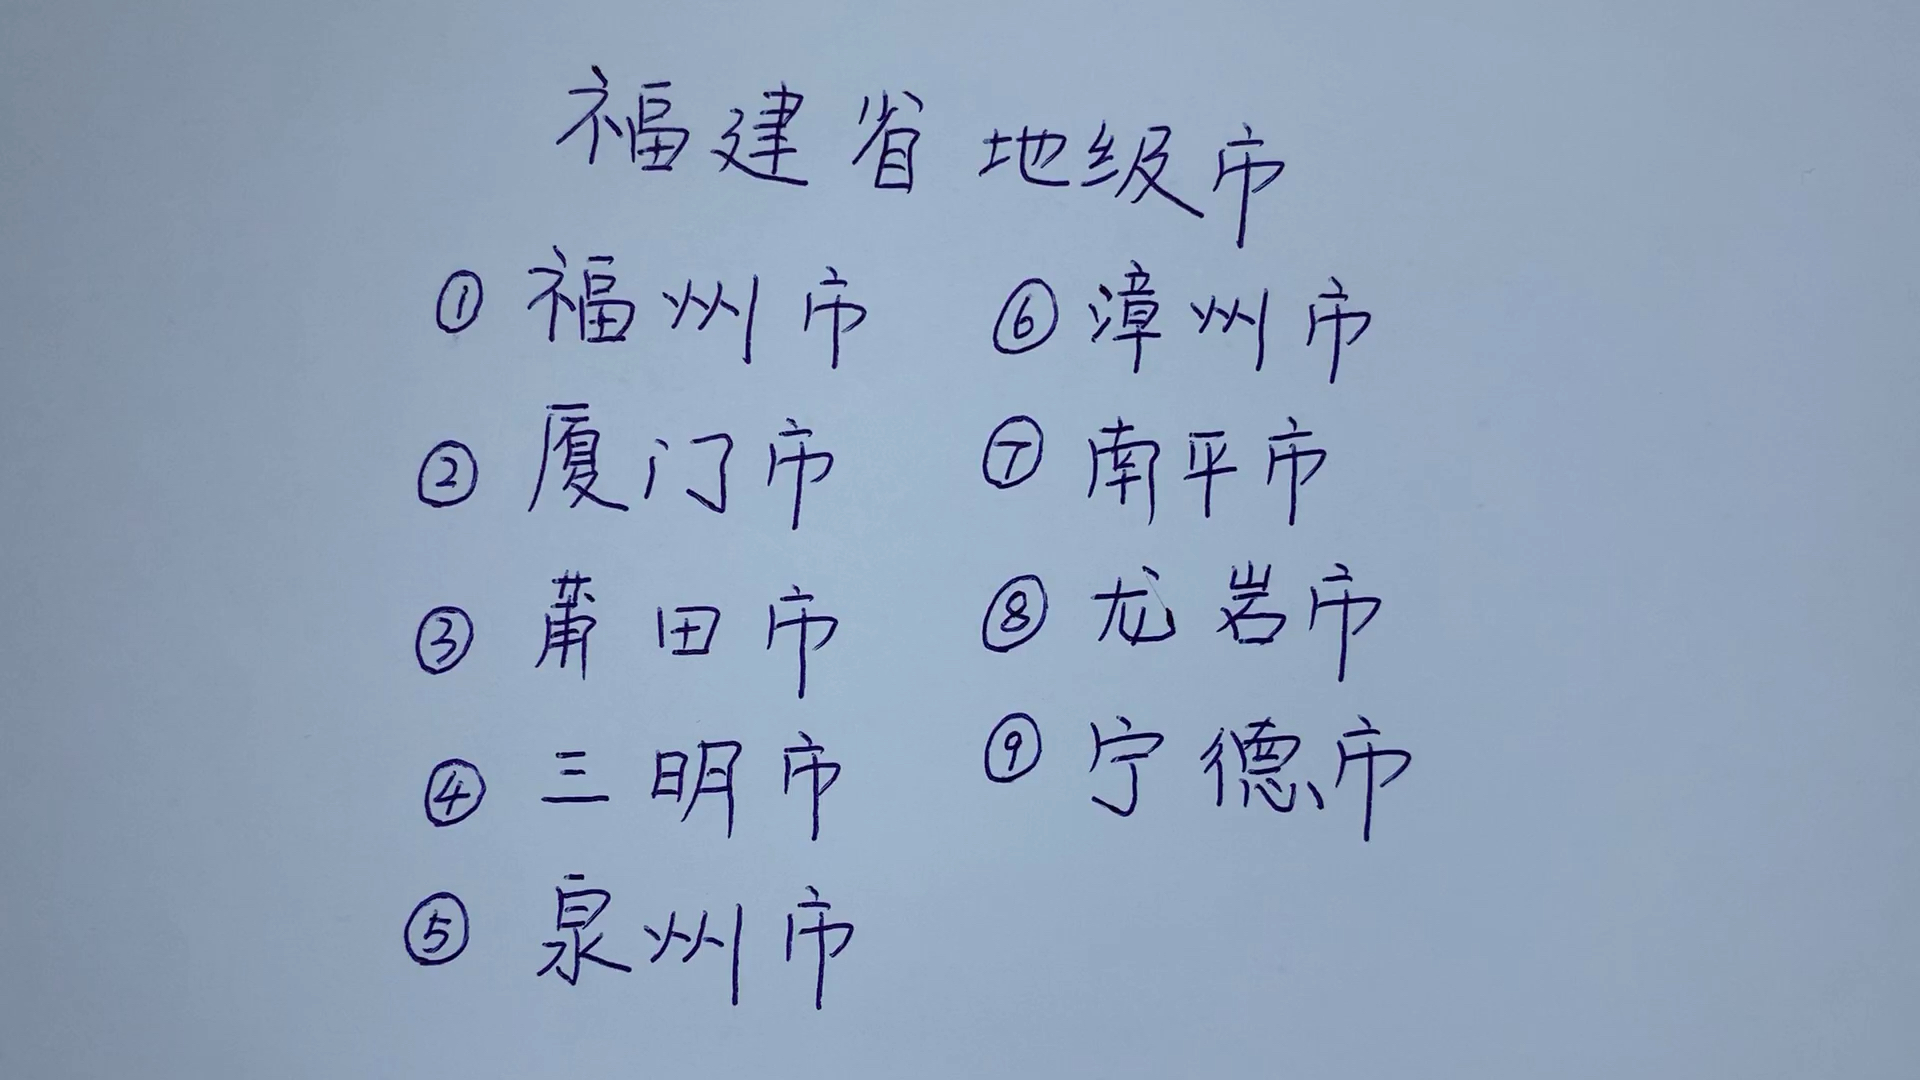 福建省地级市
①福州市
②厦门市
③莆田市
④三明市
⑤泉州市
⑥漳州市
⑦南平市
⑧龙岩市
⑨宁德市